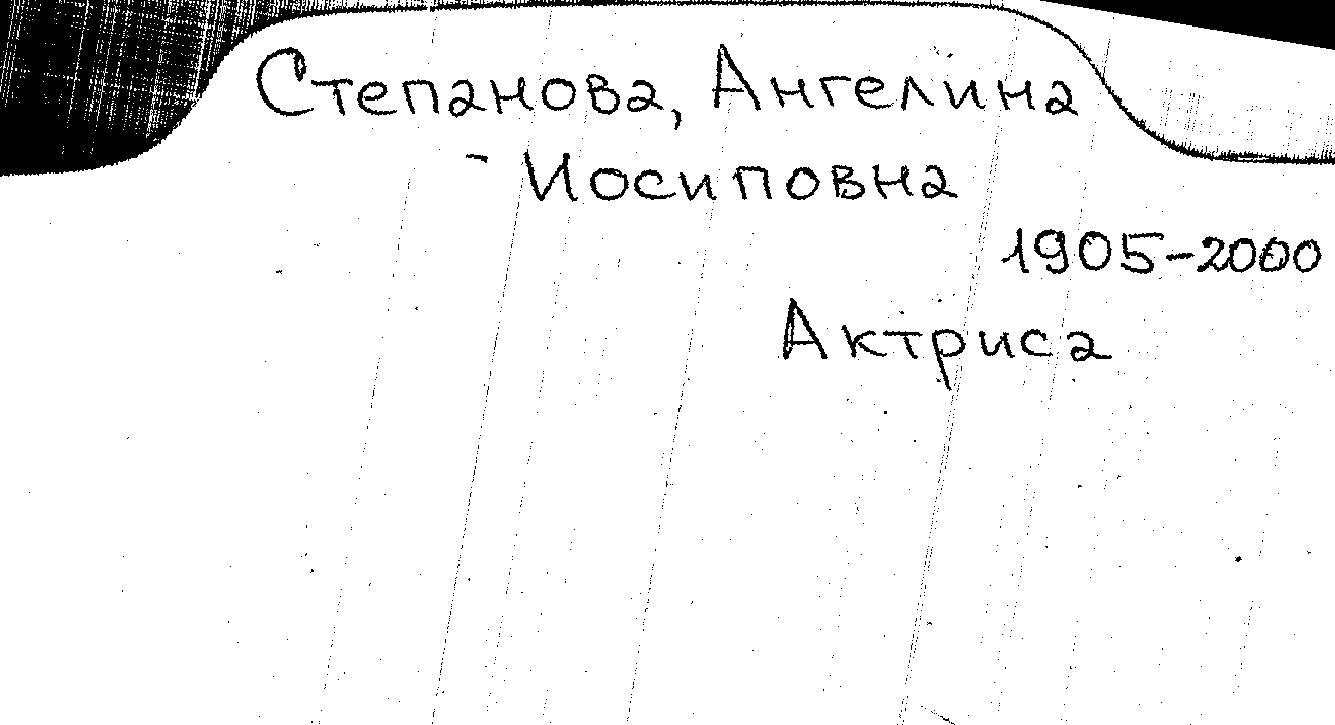 Степанова, Ангелина
Иосиповна
1905-2000
Актриса